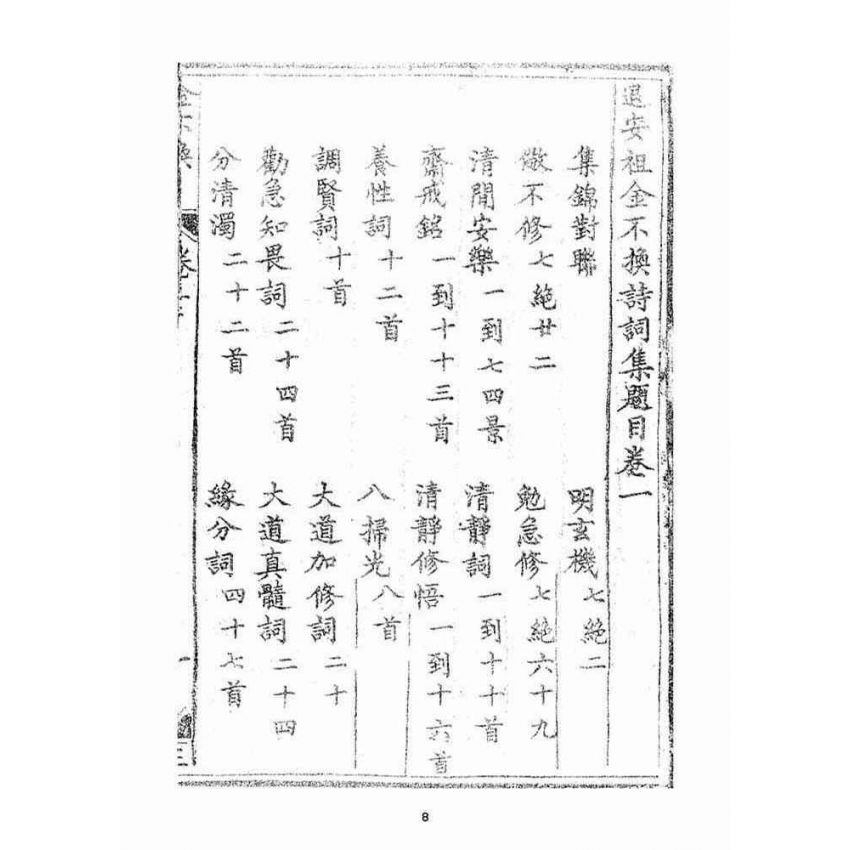 退安祖金不換詩詞集題目卷一
集錦對聯 明玄機 七絕二
做不修 七絕廿二 勉急修 七絕六十九
清閒安樂 一到七四景 清靜詞 一到十十首
齋戒銘 一到十十三首 清靜修悟 一到十六首
養性詞 十二首 八掃光 八首
調賢詞 十首 大道加修詞 二十
勸急知畏詞 二十四首 大道真髓詞 二十四
分清濁 二十二首 緣分詞 四十七首
金不換 卷 一
8